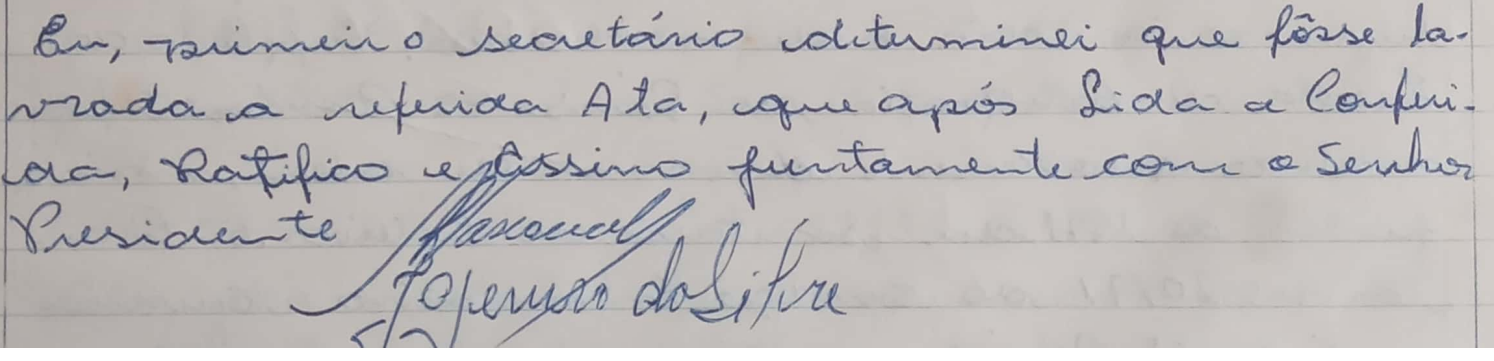 Eu, primeiro secretário determinei que fôsse la-
vrada a referida Ata, que após Lida e Conferi-
da, Ratifico e Assino juntamente com o Senhor
Presidente
da Silva